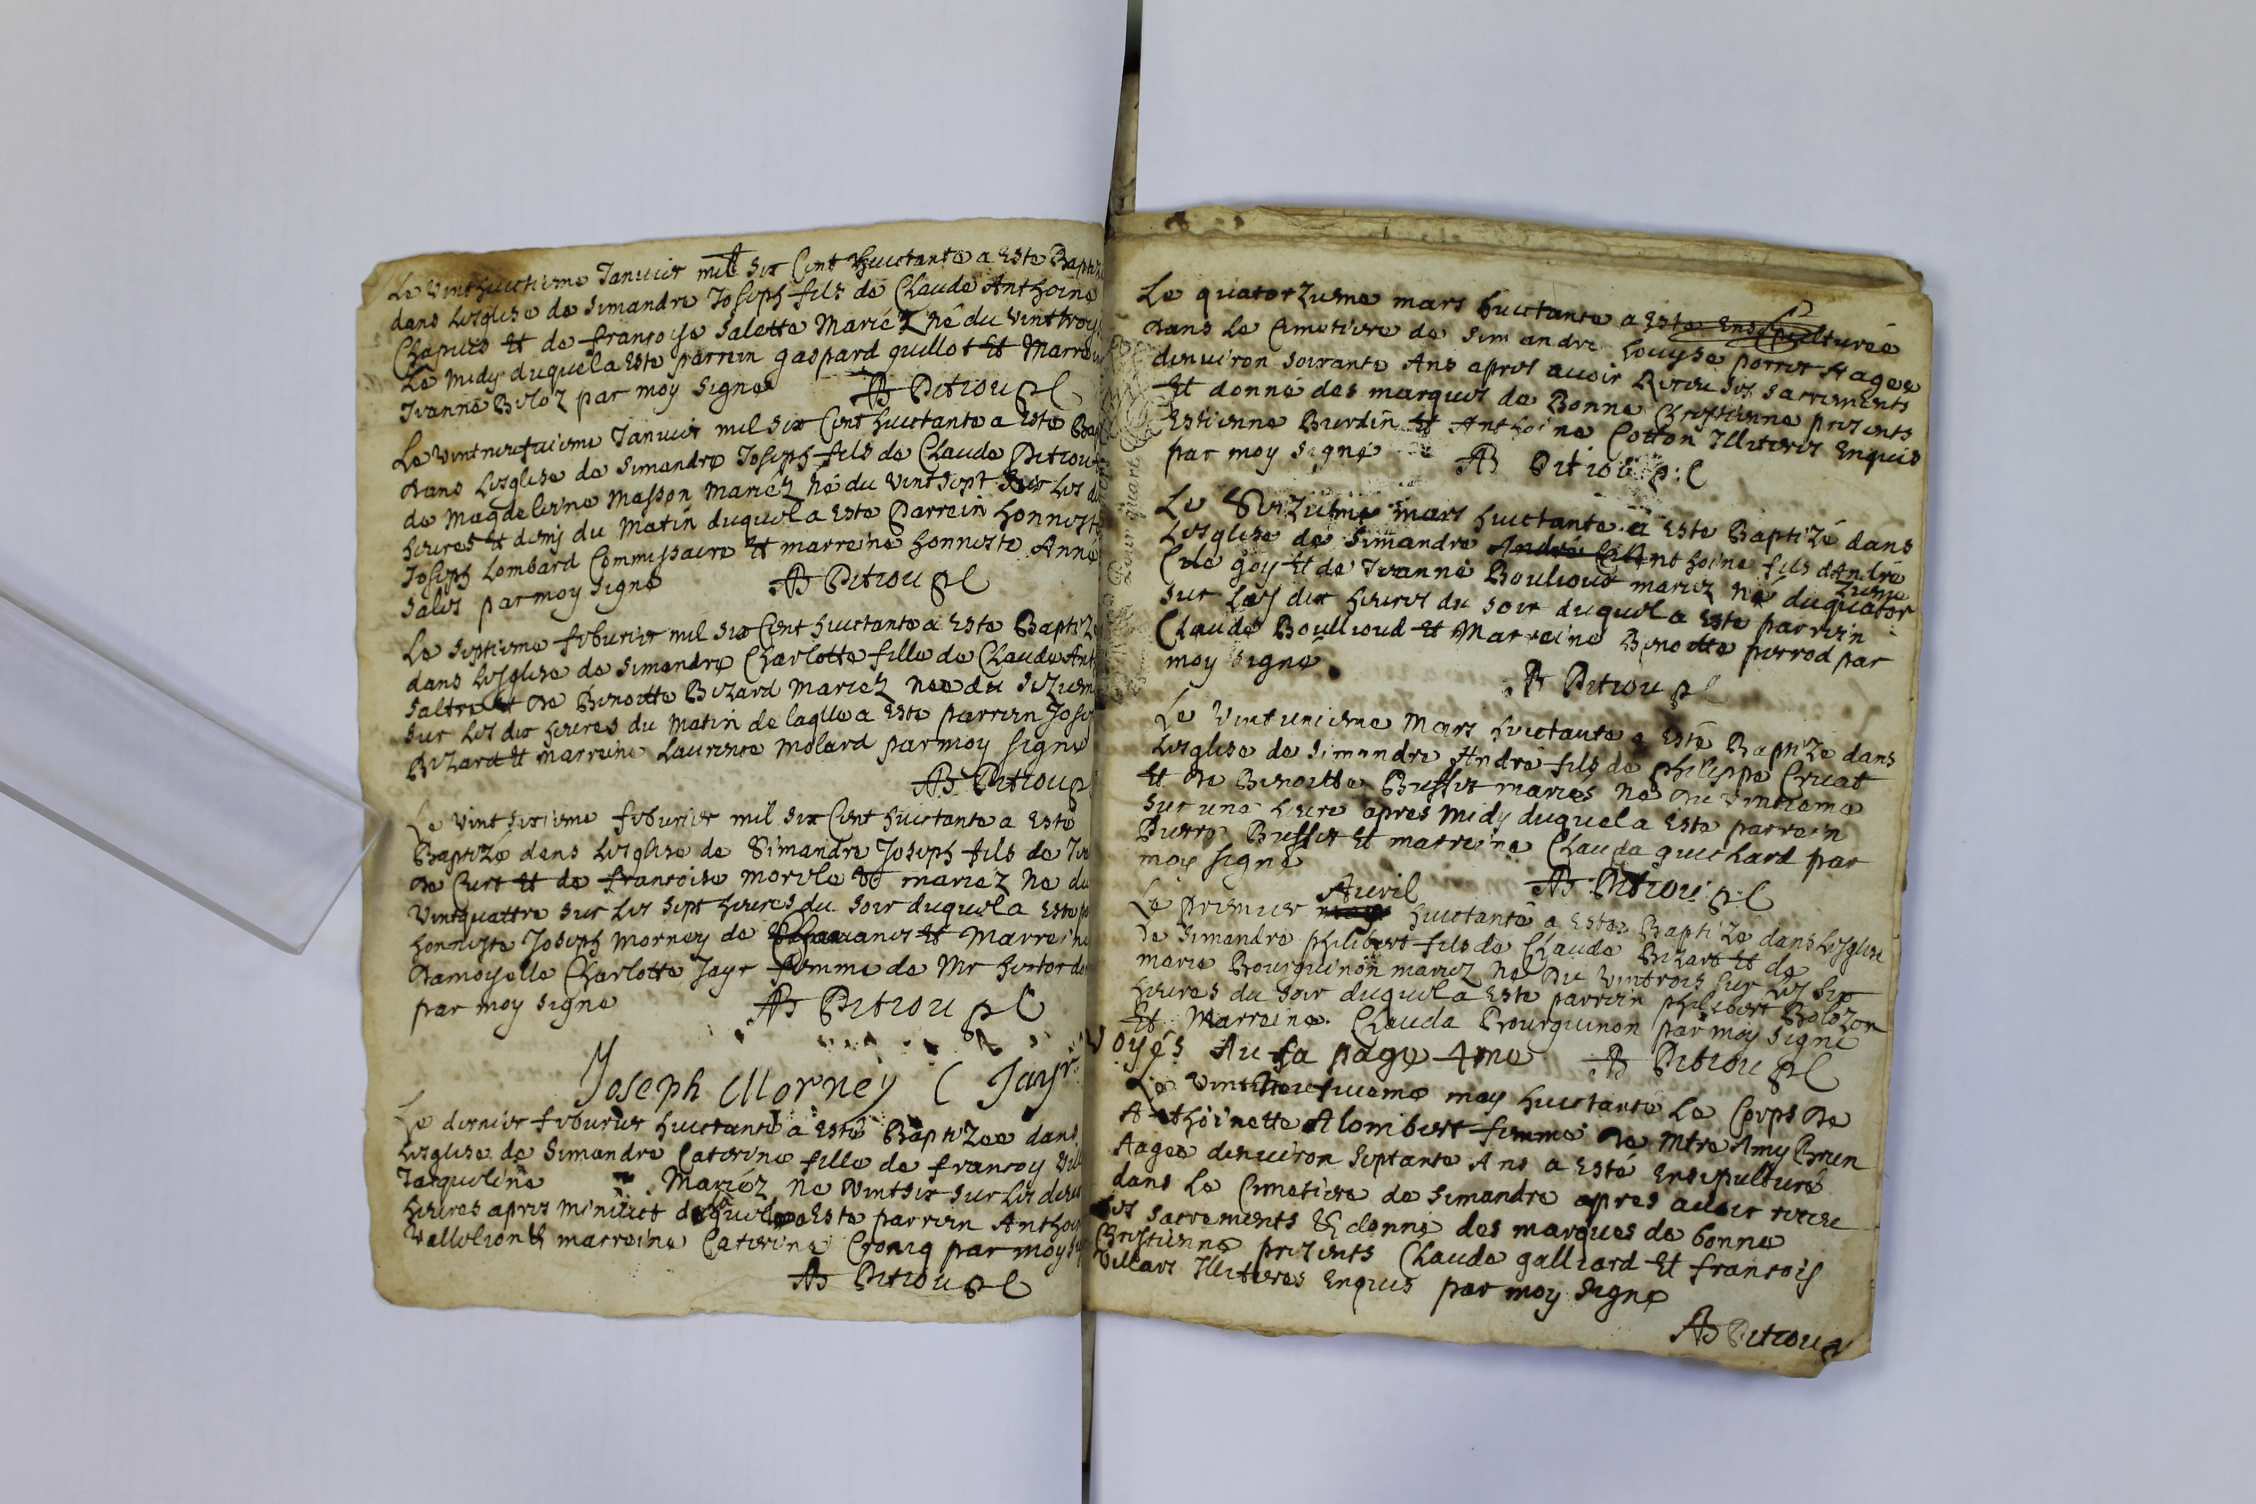 Le vinthuictiesme Januier mil six Cent huictante a Este Baptizé
dans Lesglise de Simandre Joseph fils de Claude Anthoine
Chapuis Et de françoise Salette Mariéz né du vinttroys
Le midy duquel a Este parrin gaspard guillot Et Marrei
Jeanne Beloz par moy Signe AB Petiou pl
Le vintneufuiesme Januier mil Six Cent huictante a Este Bap
dans Lesglise de Simandre Joseph fils de Claude Petiou
de Magdeleine Masson mariéz né du vintsept Sur Les d
heures Et demj du Matin duquel a Este Parrein honneste
Joseph Lombard Commissaire Et marreine honneste Anne
Sales par moy Signe AB Petiou pl
Le Septiesme feburier mil Six Cent huictante a Este Baptizé
dans Lesglise de Simandre Charlotte fille de Claude Ant
Saltre Et de Benoitte Bizard Mariéz née du Siziesm
Sur Les dix heures du Matin de laqlle a Este parrein Josep
Bizard Et marreine Laurence Molard par moy Signe
AB Petiou pl
Le vintsixiesme feburier mil Six Cent huictante a Esté
Baptize dans Lesglise de Simandre Joseph fils de
de Curt Et de françoise morele mariéz Né du
Vintquattre Sur Les Sept heures du Soir duquel a Este p
honneste Joseph Morney de Et Marreine
damoyselle Charlotte Jayr femme de Mr hector de
par moy Signe AB Petiou pl
Joseph Morney C Jayr
Le dernier feburier huictante a Esté Baptizee dans
Lesglise de Simandre Caterine fille de françoy
Jaqueline Mariéz Ne vintsix Sur Les deux
heures apres minuict duquel a Este parrein Anthoi
Vallelion & marreine Caterine par moy
AB Petiou pl
Le quatorziesme mars huictante a Este Ensepulturée
dans Le Cimetiere de Simandre Louyse perret Aagee
denuiron Soixante Ans apres auoir Receu Ses Sacrements
Et donné des marques de Bonne Chrestienne presents
Estienne Burdin Et Anthoine Cotton Illiteres Enquis
par moy Signe AB Petiou pl
Le Seiziesme mars huictante a Este Baptizé dans
Lesglise de Simandre Anthoine fils dAndré
goy Et de Jeanne Boulioud mariez né du quator
ziesme
Sur Les dix heures du Soir duquel a Este parrein
Claude Boullioud Et Marreine Benoitte perrod par
moy Signe
AB Petiou pl
Le vintuniesme Mars huictante a Esté Baptizé dans
Lesglise de Simandre André fils de philippe Cruat
Et de Benoitte Buffet mariés Né du vintieme
Sur une heure apres Midy duquel a Este parrein
Pierre Buffet Et marreine Clauda guichard par
moy Signe AB Petiou pl
Auril
Le premier huictante a Este Baptizé dans Lesglise
de Simandre philibert fils de Claude Bizard Et de
marie Bourguinon mariez Né du vintrois Sur Les Six
heures du Soir duquel a Este parrein philibert Bolozon
Et Marreine Clauda Bourguinon par moy Signe
Voyés Au fa page 4me AB Petiou pl
Le vintneufuieme may huictante Le Corps de
Anthoinette Alombert femme de Mtre Amy Brun
Aagee denuiron Septante Ans a Esté Ensepulturé
dans Le Cimetiere de Simandre apres auoir receu
Les Sacrements & donné des marques de bonne
Chrestienne presents Claude galliard Et françois
Villars Illiteres Enquis par moy Signe
AB Petiou pl